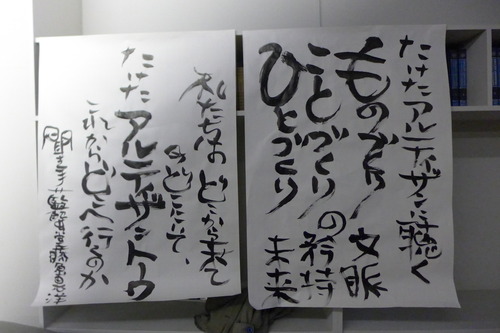 たけたアルティザンに聴く
ものづくり 文脈
ことづくり の矜持
ひとづくり 未来
私たちは どこから来て
どこにいて、
たけた アルティザントーク
これからどこへ行くのか
聞き手